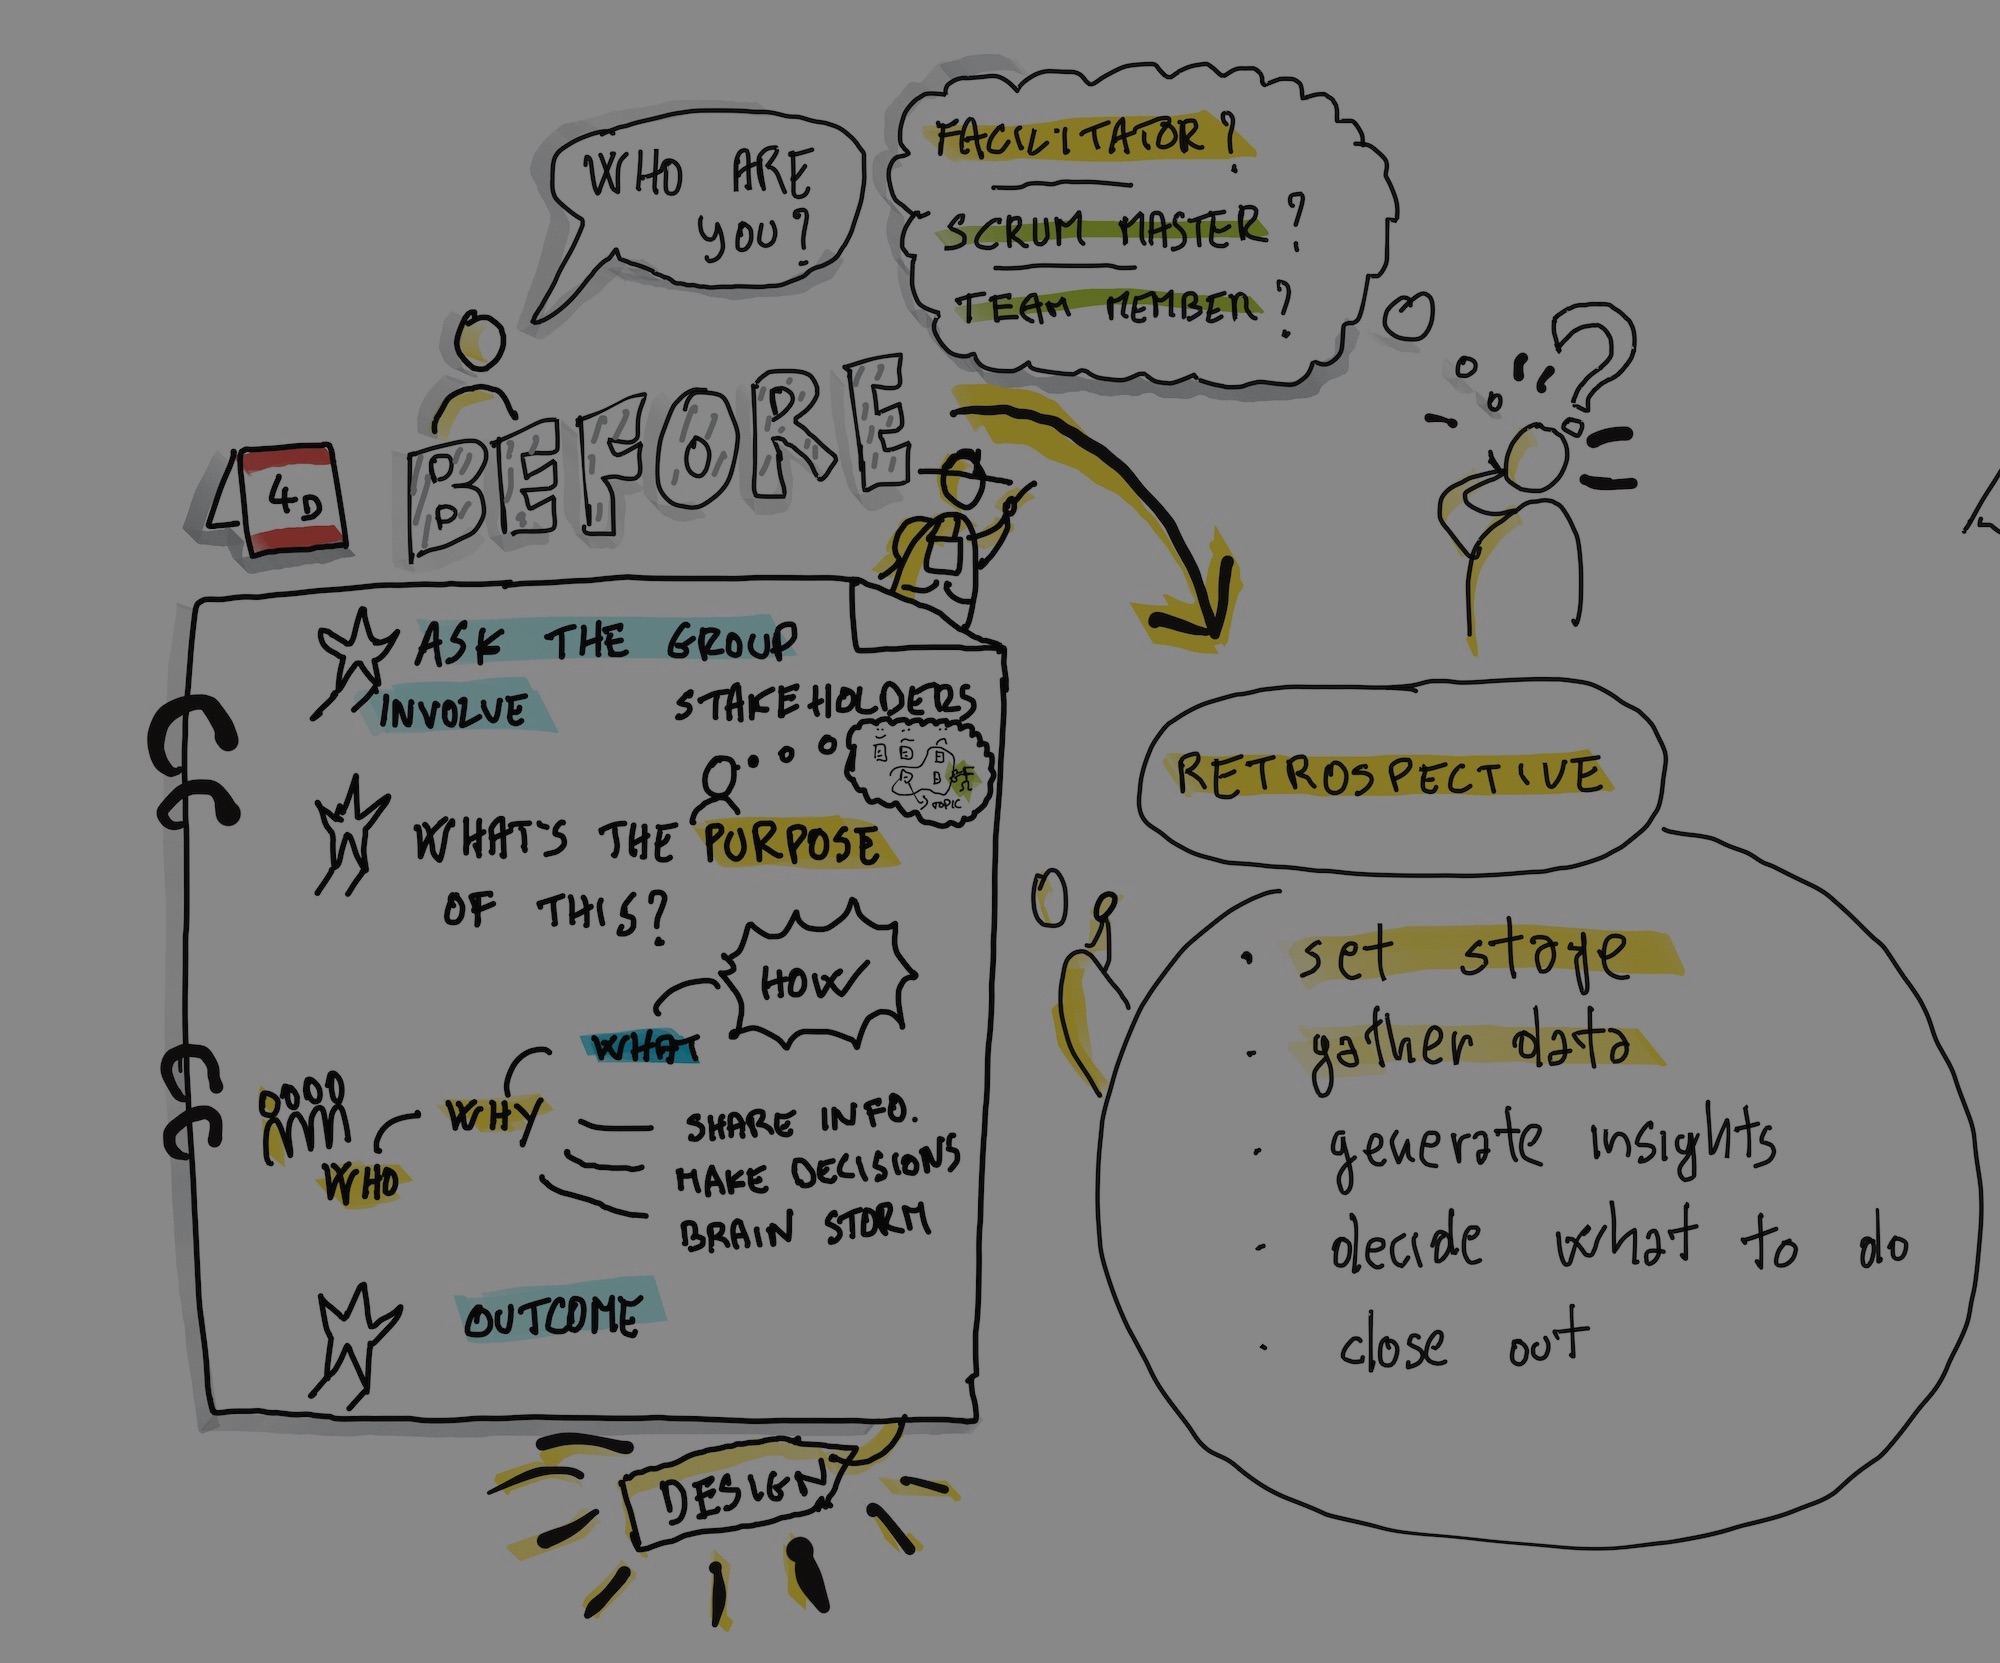 WHO ARE
YOU?
FACILITATOR?
SCRUM MASTER?
TEAM MEMBER?
?
4D
BEFORE
ASK THE GROUP
INVOLVE STAKEHOLDERS
TOPIC
WHAT'S THE PURPOSE
OF THIS?
HOW
WHAT
WHY
WHO
SHARE INFO.
MAKE DECISIONS
BRAIN STORM
OUTCOME
DESIGN
RETROSPECTIVE
• set stage
• gather data
• generate insights
• decide what to do
• close out